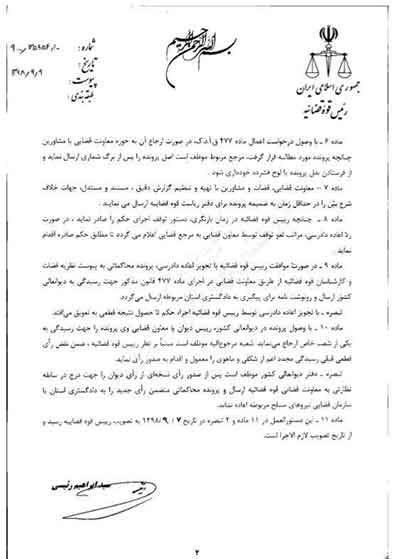 بسم الله الرحمن الرحیم
جمهوری اسلامی ایران
رئیس قوهٔ قضائیه
شماره :
تاریخ :
۱۳۹۸/۹/۹
پیوست :
طبقه بندی :
ماده ۶ ـ با وصول درخواست اعمال ماده ۴۷۷ ق.آ.د.ک، در صورت ارجاع آن به حوزه معاونت قضایی یا مشاورین
چنانچه پرونده مورد مطالبه قرار گرفت، مرجع مربوط موظف است اصل پرونده را پس از برگ شماری ارسال نماید و
از فرستادن بدل پرونده یا لوح فشرده خودداری شود.
ماده ۷ – معاونت قضایی، قضات و مشاورین با تهیه و تنظیم گزارش دقیق ، مستند و مستدل، جهات خلاف
شرع بیّن را در حداقل زمان به ضمیمه پرونده برای دفتر ریاست قوه قضاییه ارسال می نمایند.
ماده ۸ ـ چنانچه رییس قوه قضائیه در زمان بازنگری، دستور توقف اجرای حکم را صادر نماید ، در صورت
ردّ اعاده دادرسی، مراتب لغو توقف توسط معاون قضایی به مرجع قضایی اعلام می گردد تا مطابق حکم صادره اقدام
نماید.
ماده ۹ ـ در صورت موافقت رییس قوه قضائیه با تجویز اعاده دادرسی، پرونده محاکماتی به پیوست نظریه قضات
و کارشناسان قوه قضائیه از طریق معاونت قضایی در اجرای ماده ۴۷۷ قانون مذکور جهت رسیدگی به دیوانعالی
کشور ارسال و رونوشت نامه برای پیگیری به دادگستری استان مربوطه ارسال می‌گردد.
تبصره ـ با تجویز اعاده دادرسی توسط رییس قوه قضائیه اجراء حکم تا حصول نتیجه قطعی به تعویق می‌افتد.
ماده ۱۰ ـ با وصول پرونده در دیوانعالی کشور، رییس دیوان یا معاون قضایی وی پرونده را جهت رسیدگی به
یکی از شعب خاص ارجاع می‌نماید. شعبه مرجوع‌الیه موظف است مبنیاً بر نظر رییس قوه قضائیه ، ضمن نقض رأی
قطعی قبلی رسیدگی مجدد اعم از شکلی و ماهوی را معمول و اقدام به صدور رأی نماید.
تبصره ـ دفتر دیوانعالی کشور موظف است پس از صدور رأی نسخه‌ای از رأی دیوان را جهت درج در سابقه
نظارتی به معاونت قضایی قوه قضائیه ارسال و پرونده محاکماتی متضمن رأی جدید را به دادگستری استان یا
سازمان قضایی نیروهای مسلح مربوطه اعاده نماید.
ماده ۱۱ ـ این دستورالعمل در ۱۱ ماده و ۲ تبصره در تاریخ ۱۳۹۸/۹/۷ به تصویب رییس قوه قضائیه رسید و
از تاریخ تصویب لازم الاجرا است.
سید ابراهیم رئیسی
۲